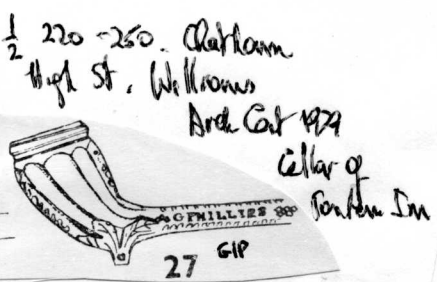 ½ 220-260. Chatham
High St. Williams
Arch Cant 1979
Cellar of
Fountain Inn
G PHILLIPS
GIP
27